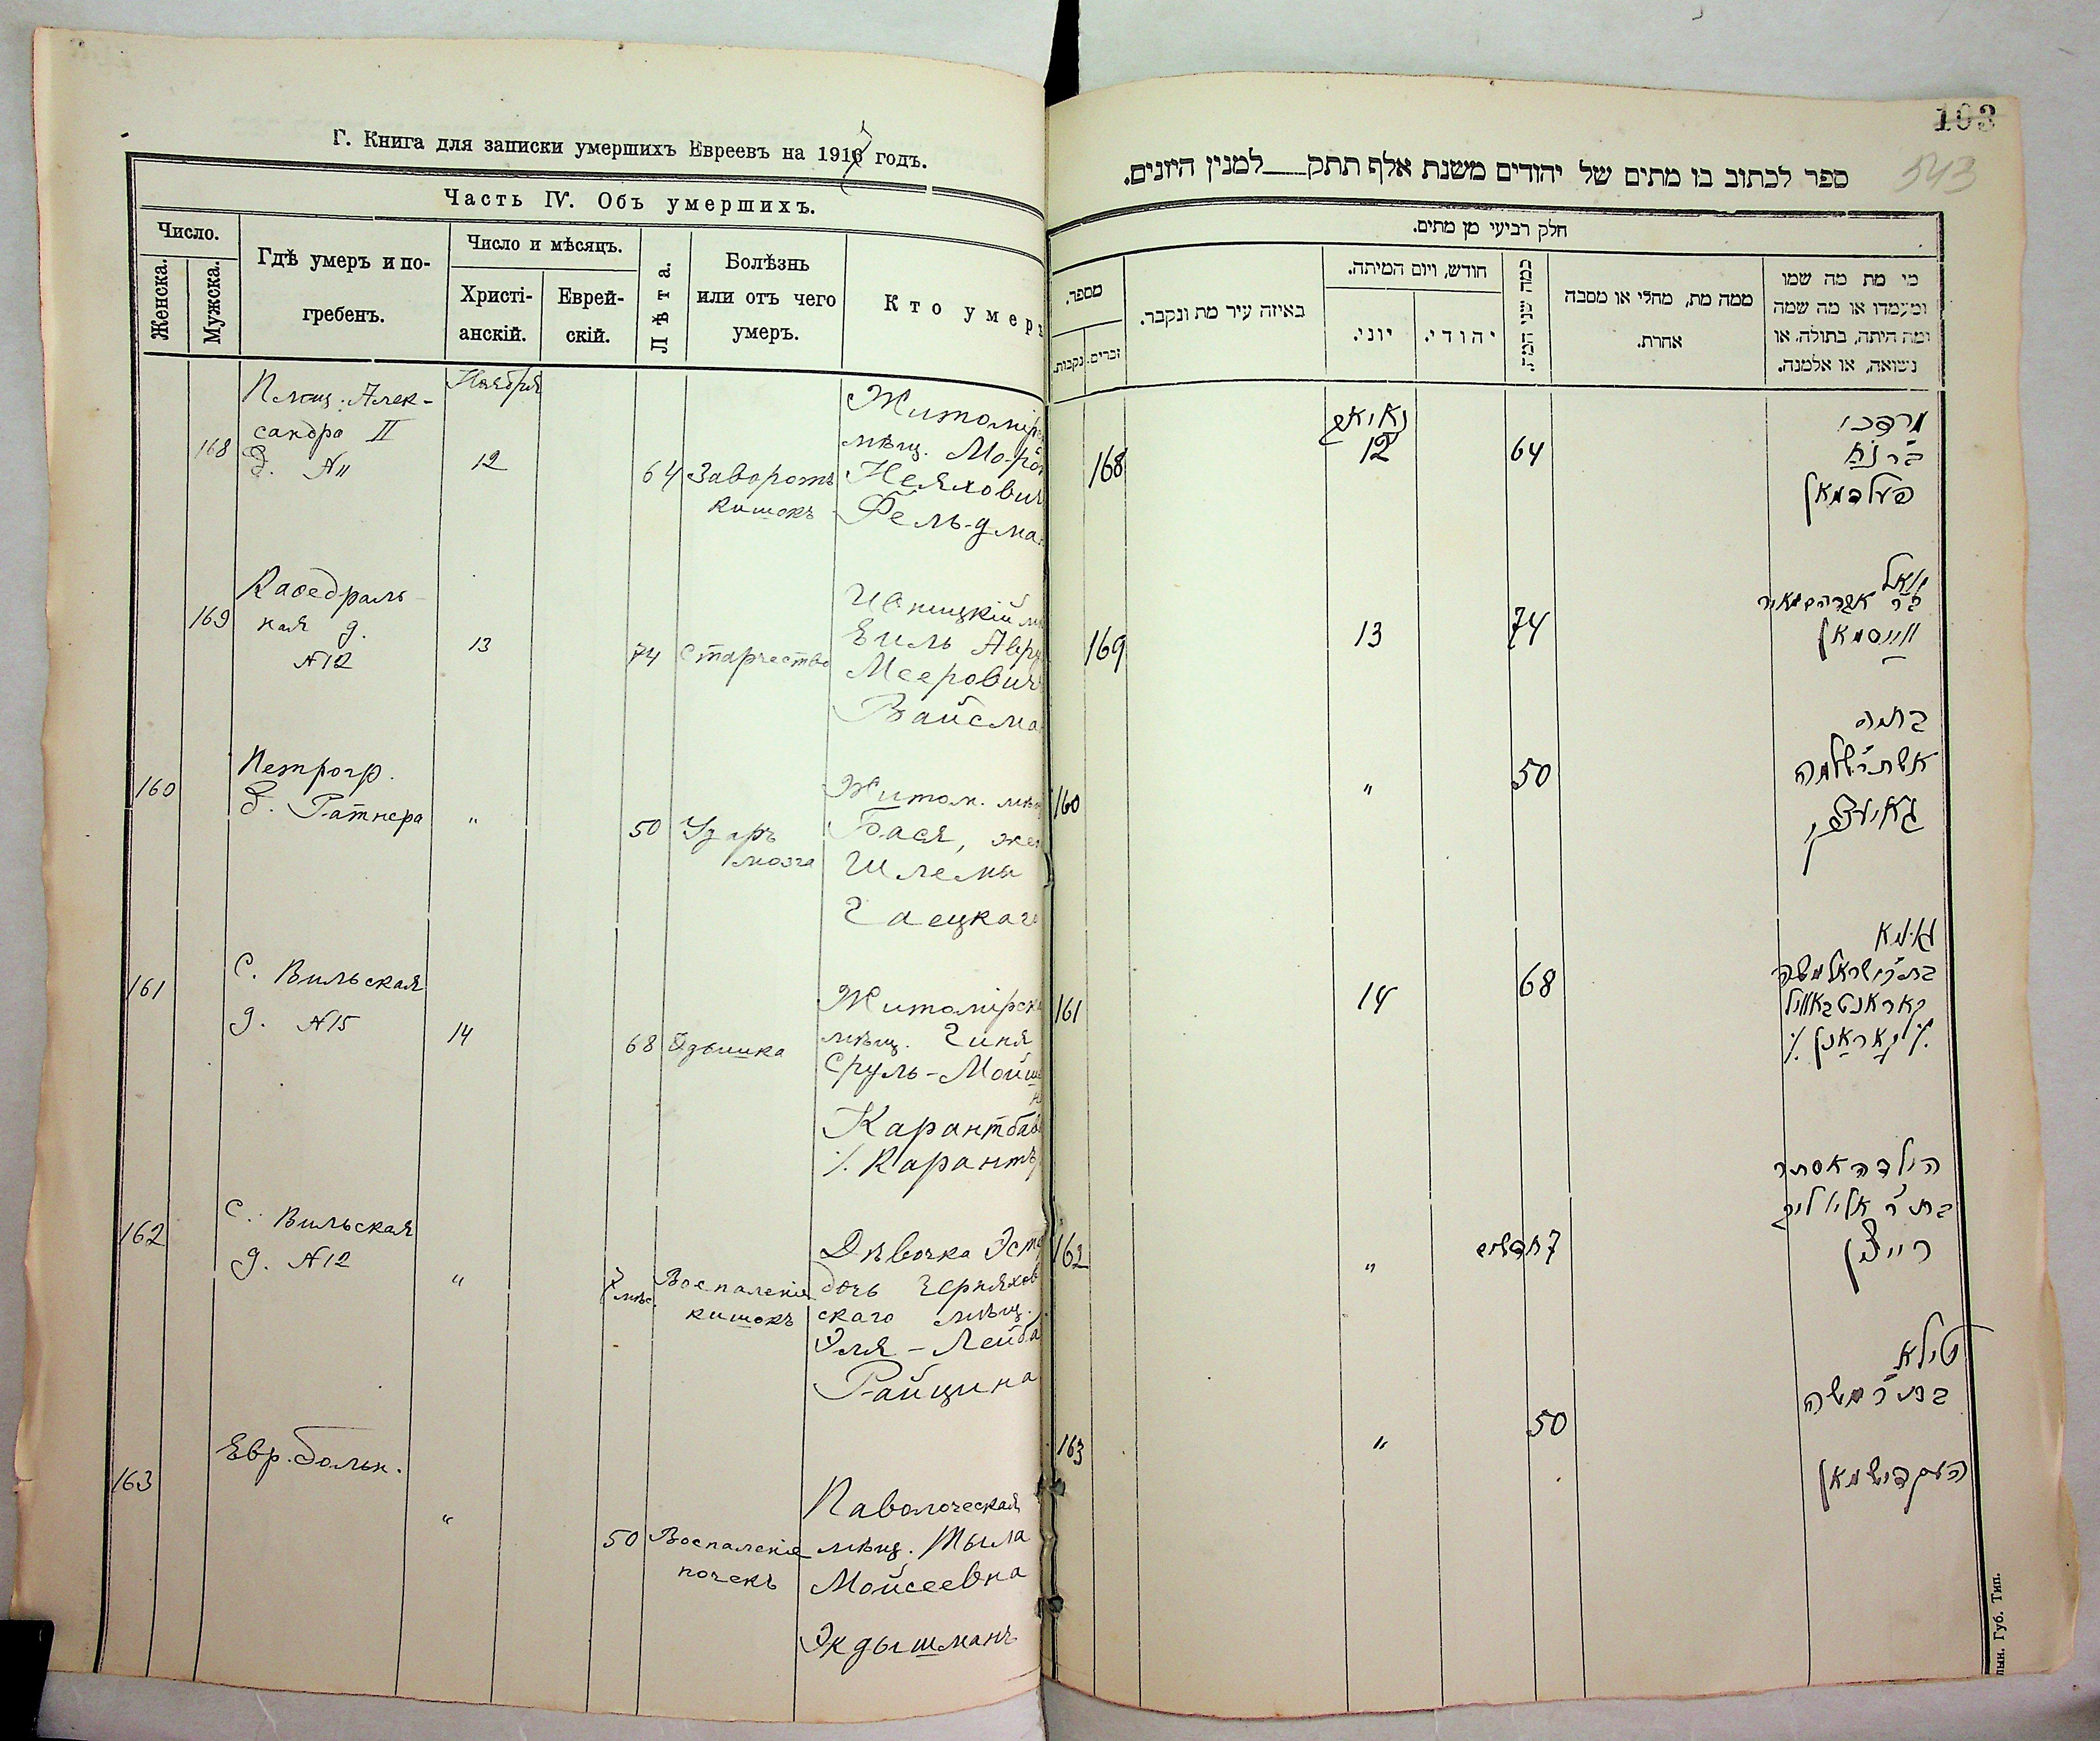 Г. Книга для записки умершихъ Евреевъ на 1917 годъ.
Часть IV. Объ умершихъ.
Число.
Женска.
Мужска.
Гдѣ умеръ и по-
гребенъ.
Число и мѣсяцъ.
Христі-
анскій.
Еврей-
скій.
Лѣта.
Болѣзнь
или отъ чего
умеръ.
Кто умеръ
168
Площ. Алек-
сандра II
д. №11
Ноября
12
64
Заворотъ
кишокъ
Житомірс
мѣщ. Мордк
Неяхович
Фельдма
169
Каѳедраль-
ная д.
№12
13
74
Старчество
Ивницкій мѣ
Еиль Авру
Меерович
Вайсма
160
Петрогр.
д. Ратнера
"
50
Ударъ
мозга
Житом. мѣщ
Бася, жен
Шлемы
Гаецкаго
161
С. Вильская
д. №15
14
68
Одышка
Житомірска
мѣщ. Гиня
Сруль-Мойш
Карантбай
٪ Карантъ
162
С. Вильская
д. №12
"
7
мѣс.
Воспаленіе
кишокъ
Дѣвочка Эст
дочь Черняхов
скаго мѣщ.
Эля-Лейба
Райцина
163
Евр. больн.
"
50
Воспаленіе
почекъ
Паволочская
мѣщ. Тыла
Мойсеевна
Экдышманъ
103
543
ספר לכתוב בו מתים של יהודים משנת אלף תתק___למנין היונים.
חלק רביעי מן מתים.
מספר.
נקבות.
זכרים.
באיזה עיר מת ונקבר.
חודש, ויום המיתה.
יוני.
יהודי.
כמה שני המת.
ממה מת, מחלי או מסבה
אחרת.
מי מת מה שמו
ומעמדו או מה שמה
ומה היתה, בתולה, או
נשואה, או אלמנה.
168
12
64
מרדכי
ב"ר נח
פעלדמאן
169
13
74
יואל
ב"ר אברהם מאיר
ווייסמאן
160
"
50
בתיה
אשת ר' שלמה
גאיעצקי
161
14
68
גינא
בת ר' ישראל משה
קאראנטבאוויל
٪ קאראנט ٪
162
"
7 חדשים
הילדה אסתר
בת ר' אלי' ליב
רייצין
163
"
50
טילא
בת ר' משה
העקדישמאן
лын. Губ. Тип.